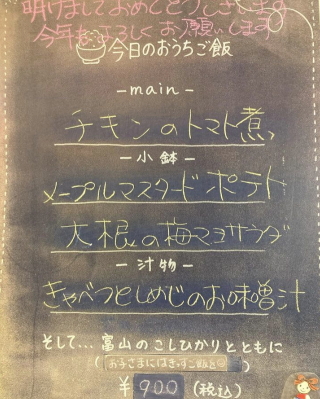 明けましておめでとうございます
今年もよろしくお願いします
今日のおうちご飯
-main-
チキンのトマト煮
-小鉢-
メープルマスタードポテト
大根の梅マヨサラダ
-汁物-
きゃべつとしめじのお味噌汁
そして…富山のこしひかりとともに
(お子さまにはきずこ飯を)
¥900(税込)